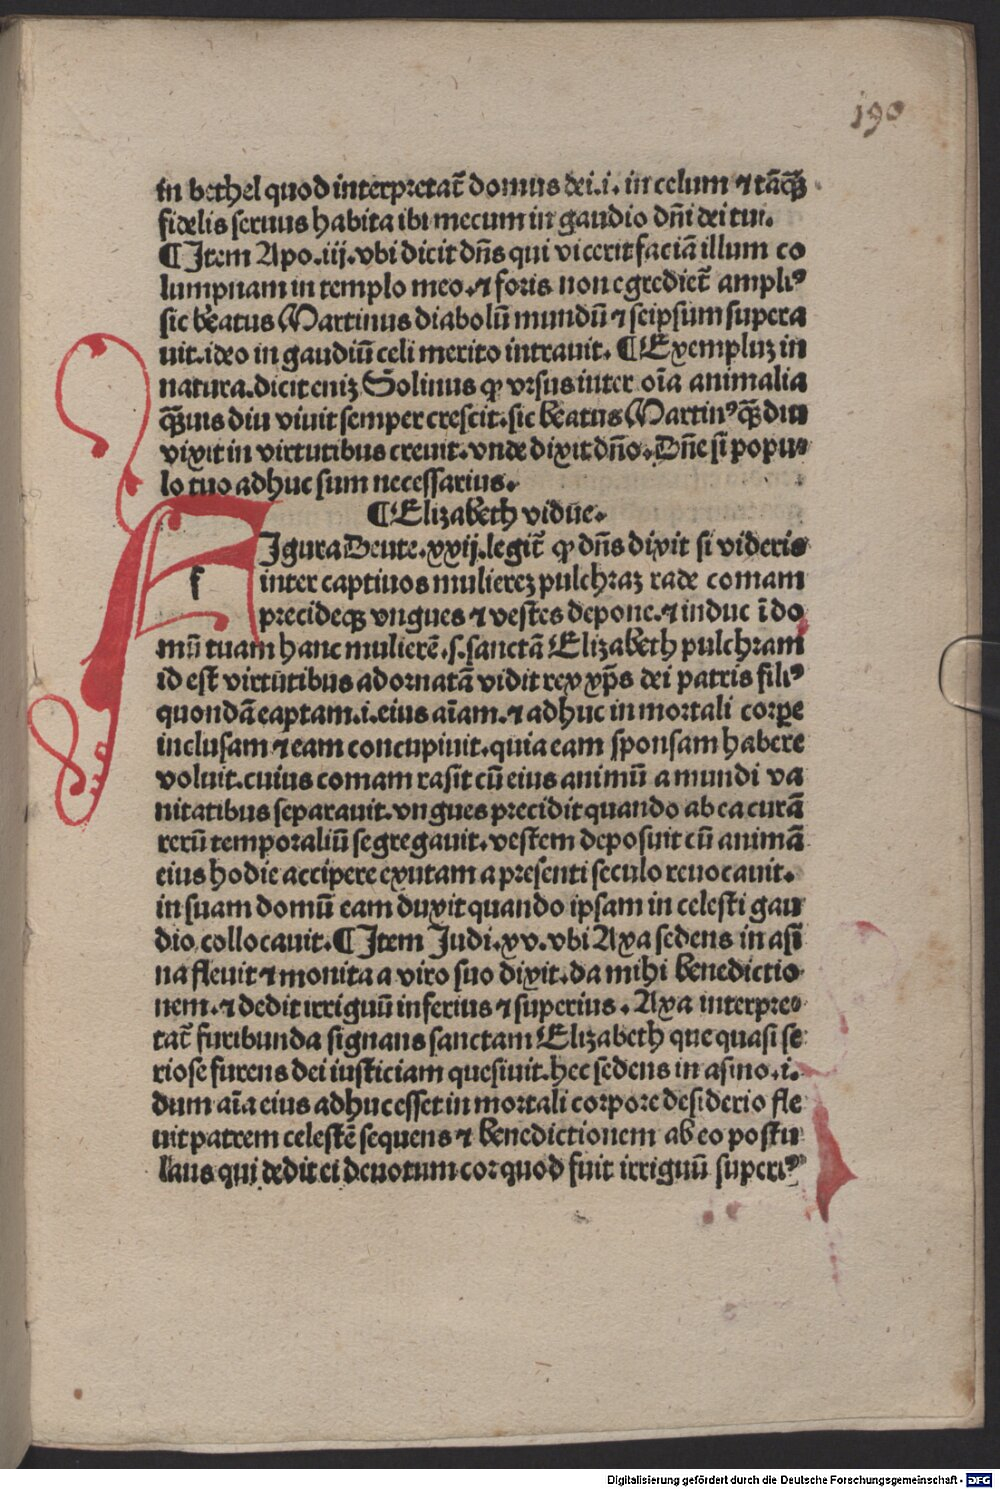 190
in bethel quod interpretat̃ domus dei.i. in celum ⁊ tãq̃ꝫ
fidelis seruus habita ibi mecum in gaudio dñi dei tui.
¶ Item Apo.iij.vbi dicit dñs qui vicerit faciã illum co
lumpnam in templo meo.⁊ foris non egrediet̃ ampliꝰ
sic beatus Martinus diabolũ mundũ ⁊ seipsum supera
uit.ideo in gaudiũ celi merito intrauit. ¶ Exempluꝫ in
natura.dicit eniꝫ Solinus ꝙ vrsus inter oĩa animalia
q̃ꝫuis diu viuit semper crescit.sic beatus Martinꝰ q̃ꝫ diu
vixit in virtutibus creuit.vnde dixit dño.Dñe si popu⸗
lo tuo adhuc sum necessarius.
¶ Elizabeth vidue.
f
Igura Deute.xxij.legit̃ ꝙ dñs dixit si videris
inter captiuos muliereꝫ pulchraꝫ rade comam
precideqꝫ vngues ⁊ vestes depone.⁊ induc ĩ do
mũ tuam hanc mulierẽ.s.sanctã Elizabeth pulchram
id est virtutibus adornatã vidit rex xp̃s dei patris filiꝰ
quondã captam.i.eius aĩam.⁊ adhuc in mortali corꝑe
inclusam ⁊ eam concupiuit.quia eam sponsam habere
voluit.cuius comam rasit cũ eius animũ a mundi va
nitatibus separauit.vngues precidit quando ab ea curã
rerũ temporaliũ segregauit.vestem deposuit cũ animã
eius hodie accipere exutam a presenti seculo reuocauit.
in suam domũ eam duxit quando ipsam in celesti gau
dio collocauit. ¶ Item Judi.xv.vbi Axa sedens in asi
na fleuit ⁊ monita a viro suo dixit.da mihi benedictio
nem.⁊ dedit irriguũ inferius ⁊ superius. Axa interpre⸗
tat̃ furibunda signans sanctam Elizabeth que quasi se
riose furens dei iusticiam quesiuit.hec sedens in asino.i.
dum aĩa eius adhuc esset in mortali corpore desiderio fle
uit patrem celestẽ sequens ⁊ benedictionem ab eo postu
laus qui dedit ei deuotum cor quod fuit irriguũ superiꝰ
Digitalisierung gefördert durch die Deutsche Forschungsgemeinschaft - DFG